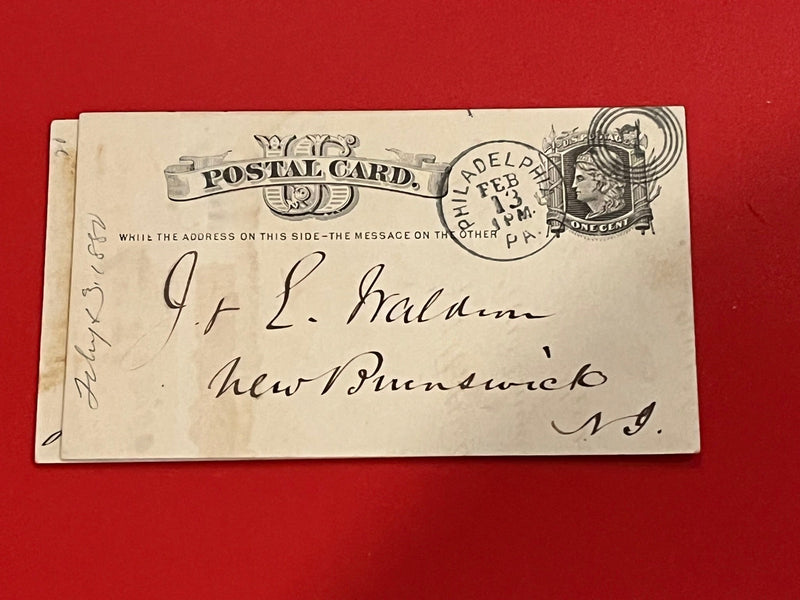 US
POSTAL CARD.
WRITE THE ADDRESS ON THIS SIDE-THE MESSAGE ON THE OTHER
PHILADELPHIA
FEB
13
1PM.
PA.
U.S. POSTAGE
ONE CENT
J. & L. Waldron
New Brunswick
N J.
13. 1880